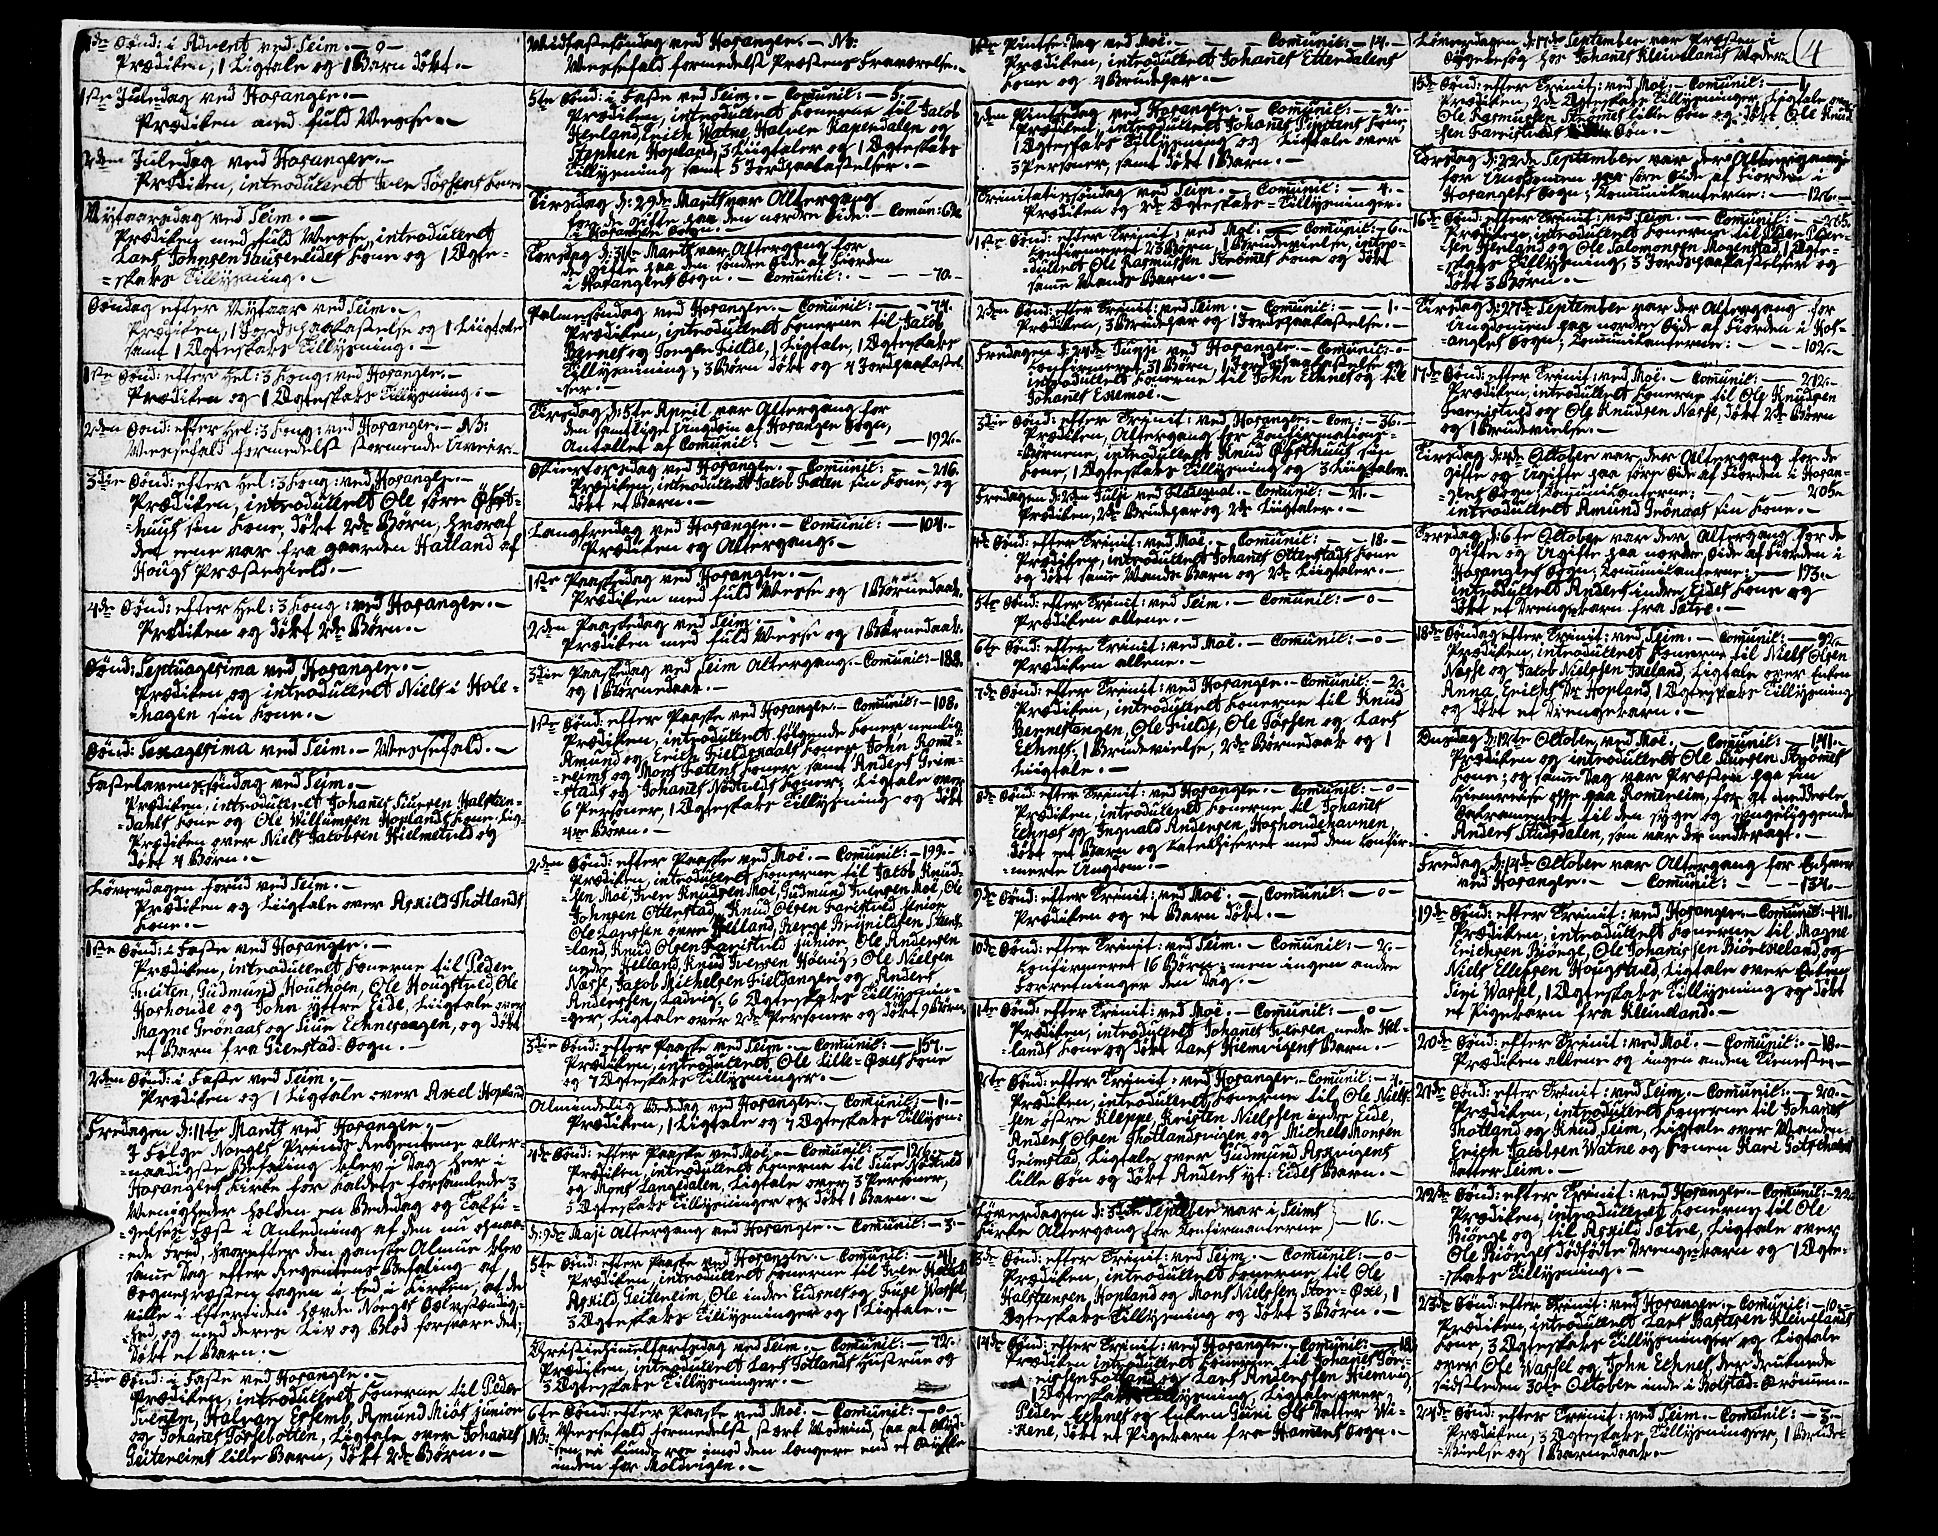 4de Sønd: i Advent ved Seim. — o —
Prædiken, 1 Ligtale og 1 Barn døbt. —
1ste Juledag ved Hosanger. —
Prædiken med fuld Messe. —
2den Juledag ved Hosanger. —
Prædiken, introduceret
Nytaarsdag ved Seim. —
Prædiken med fuld Messe, introduceret
Lars Johnsen Kone og 1 Ægte-
=skabs Tillysning. —
Søndag efter Nytaar ved Seim. —
Prædiken, 1 Jordspaakastelse og 1 Liigtale
samt 1 Ægteskabs Tillysning. —
1ste Sønd: efter Hel: 3 Kong: ved Hosanger. —
Prædiken og 1 Ægteskabs Tillysning. —
2den Sønd: efter Hel: 3 Kong: ved Hosanger. — NB:
Messefald formedelst stormende Uveir. —
3die Sønd: efter Hel: 3 Kong: ved Hosanger. —
Prædiken, introduceret Ole
sin Kone, døbt 2de Børn, hvoraf
det eene var fra gaarden Hatland af
Hougs Præstegield. —
4de Sønd: efter Hel: 3 Kong: ved Hosanger. —
Prædiken og døbt 2de Børn. —
Sønd: Septuagesima ved Hosanger. —
Prædiken og introduceret Niels i Hole-
=hagen sin Kone. —
Sønd: Sexagesima ved Seim. — Messefald. —
Fastelavenssøndag ved Seim. —
Prædiken, introduceret Johanes Halsten-
=dahls Kone og Ole Willumsen Hoplands Kone, Liig-
Prædiken over Niels Jacobsen Hielmetveld og
døbt 4 Børn. —
Løverdagen forud ved Seim. —
Prædiken og Liigtale over Askild Thotlands
Kone. —
1ste Sønd: i Faste ved Hosanger. —
Prædiken, introduceret Konerne til Peder
Tveiten, Gudmund Ole Hougstveld, Ole
Hoshovde og John yttre Eide, Liigtale over
Magne Grønaas og og døbt
et Barn fra Sogn. —
2den Sønd: i Faste ved Seim. —
Prædiken og 1 Ligtale over Axel Hopland
Fredagen d: 11te Martz ved Hosanger. —
I Følge Norges Prinds Regentens aller-
=naadigste Befaling blev i Dag her i
Hosangers Kirke for Kaldets forsamlede 3
Menigheder holden en Bededag og Taksi-
=gelses Fæst i Anledning af den nu
=ede Fred, hvorefter den ganske Almue blev
samme Dag efter Regentens Befaling af
Sognepræsten tagen i Eed i Kirken, at de
ville i Eftertiden hævde Norges Selvstændig-
=hed, og med deres Liv og Blod forsvare det;
døbt et Barn. —
3die Sønd: i Faste ved Hosanger. —
Prædiken, introduceret Konerne til Peder
Halvor Amund Miøs junior
og Johanes Ligtale over Johanes
Geitereims lille Barn, døbt 2de Børn. —
Midfastesøndag ved Hosanger. — NB:
Messefald formedelst Præstens Fraværelse. —
5te Sønd: i Faste ved Seim. — Comunic: — 5. —
Prædiken, introduceret Konerne til Jacob
Erich Watne, Halvor og
Hopland, 3 Liigtaler og 1 Ægteskabs
Tillysning samt 5 Jordspaakastelser. —
Tirsdag d: 29de Marts var Altergang
for de Gifte paa den nordre Side. — Comun: 62.
i Hosangers Sogn. —
Torsdag d: 31te Marts var Altergang for
de Gifte paa den søndre Side af Fiorden
i Hosangers Sogn. — Comunic: — — 70. —
Palmesøndag ved Hosanger. — Comunic: — 74.
Prædiken, introduceret Konerne til Jacob
og 1 Liigtale, 1 Ægteskabs
Tillysning, 3 Børn døbt og 4 Jordspaakastel-
=ser. —
Tirsdag d: 5te April var Altergang for
den samtlige Ungdom af Hosanger Sogn,
Antallet af Comunic: — — 192. —
Skiertorsdag ved Hosanger. — Comunic: — 216.
Prædiken, introduceret Jacob sin Kone, og
døbt et Barn. —
Langfredag ved Hosanger. — Comunic: — 104. —
Prædiken og Altergang. —
1ste Paaskedag ved Hosanger. —
Prædiken med fuld Messe og 1 Børnedaab.
2den Paaskedag ved Seim. —
Prædiken med fuld Messe og 1 Børnedaab.
3die Paaskedag ved Seim Altergang. — Comunic: — 188.
og 1 Børnedaab. —
1ste Sønd: efter Paaske ved Hosanger. — Comunic: — 108.
Prædiken, introduceret følgende Koner, nemlig:
Amund og Erich Fieldsdals Koner, John Rome-
=reims og Mons Koner samt Anders Grim-
=stads og Johanes Nøtvelds Koner; Ligtale over
6 Personer, 1 Ægteskabs Tillysning og døbt
4de Børn. —
2den Sønd: efter Paaske ved Moe. — Comunic: — 199. —
Prædiken, introduceret Konerne til Jacob Knud-
=sen Moe, Iver Knudsen Moe, Gudmund Iversen Moe, Ole
Johnsen Otterstad, Knud Olsen Farestveld senior
Ole Larssen øvre Helland,
=land, Knud Olsen Farestveld junior, Ole Andersen
nedre Helland, Knud Iversen Ole Nielsen
Nasse, Jacob Michelsen og Anders
Anderssen, Ladvig, 6 Ægteskabs Tillysnin-
=ger, Ligtale over 2de Personer og døbt 9 Børn.
3die Sønd: efter Paaske ved Seim. — Comunic: — 157. —
Prædiken, introduceret Ole Lille= Kone
og 7 Ægteskabs Tillysninger. —
Almindelig Bededag ved Hosanger. — Comunic: — 1. —
Prædiken, 1 Ligtale og 7 Ægteskabs Tillysn:
4de Sønd: efter Paaske ved Moe. — Comunic: — 126. —
Prædiken, introduceret Konerne til Siur Nøtveld
og Mons Langedalen, Ligtale over 3 Personer,
5 Ægteskabs Tillysninger og døbt 1 Barn. —
d: 9de Maji Altergang ved Hosanger. — Comunic: — 3. —
5te Sønd: efter Paaske ved Hosanger. — Comunic: — 41.
Prædiken, introduceret Konerne til Iver
Askild Geitereim, Ole indre Eidsnes og Wassel,
3 Ægteskabs Tillysninger og 1 Ligtale. —
Christihimmelfartsdag ved Seim. — Comunic: — 72. —
Prædiken, introduceret Lars Totlands Hustrue og
3 Ægteskabs Tillysninger. —
6te Sønd: efter Paaske ved Moe. — Comunic: — o —
NB: Messefald formedelst stærk Modvind, saa at Skyd-
=sen ei kunde roe imod den længere end et Stykke
inden for Moldvigen. —
1ste Pintse Dag ved Moe. — Comunic: — 14. —
Prædiken, introduceret Johanes Ettendalens
Kone og 4 Brudepar. —
2den Pintsedag ved Hosanger. — Comunic: — 2. —
Prædiken, introduceret Johanes Kone,
1 Ægteskabs Tillysning og Liigtale over
3 Personer, samt døbt 1 Barn. —
Trinitatissøndag ved Seim. — Comunic: — 4. —
Prædiken og 2de Ægteskabs= Tillysninger. —
1ste Sønd: efter Trinit: ved Moe. — Comunic: — 6. —
Confirmeret 23 Børn, 1 Brudevielse, intro-
=duceret Ole Rasmussen Strømes Kone og døbt
samme Mands Barn. —
2den Sønd: efter Trinit: ved Seim. — Comunic: — 1. —
Prædiken, 3 Brudepar og 1 Jordspaakastelse. —
Fredagen d: 24de Junji ved Hosanger. — Comunic: — o —
Confirmeret 31 Børn, 1 Jordspaakastelse og
introduceret Konerne til John Echnes og til
Johanes Estemoe. —
3die Sønd: efter Trinit: ved Hosanger. — Com: — 36. —
Prædiken, Altergang for Confirmations-
=Børnene, introduceret Knud sin
Kone, 1 Ægteskabs Tillysning og 3 Liigtaler. —
Fredagen d: 2den Julji ved — Comunic: — 21. —
Prædiken, 2de Brudepar og 2de Liigtaler. —
4de Sønd: efter Trinit: ved Moe. — Comunic: — 18. —
Prædiken, introduceret Johanes Otterstads Kone
og døbt samme Mands Barn og 2de Liigtaler. —
5te Sønd: efter Trinit: ved Seim. — Comunic: — o —
Prædiken allene. —
6te Sønd: efter Trinit: ved Moe. — Comunic: — o —
Prædiken allene. —
7de Sønd: efter Trinit: ved Hosanger. — Comunic: — 2. —
Prædiken, introduceret Konerne til Knud
Bernestangen, Ole Fielde, Ole og Lars
Echnes, 1 Brudevielse, 2de Børnedaab og 1
Liigtale. —
8de Sønd: efter Trinit: ved Hosanger. — Comunic: — o —
Prædiken, introduceret Konerne til Johanes
Echnes og Ingvald Andersen, Hoshovdehavnen,
døbt et Barn og Catechiseret med den Confir-
=merte Ungdom. —
9de Sønd: efter Trinit: ved Moe. — Comunic: — o —
Prædiken og et Barn døbt. —
10de Sønd: efter Trinit: ved Seim. — Comunic: — 2. —
Confirmeret 16 Børn, men ingen andre
Forretninger den Dag. —
11te Sønd: efter Trinit: ved Moe. — Comunic: — o —
Prædiken, introduceret Johanes Iversen, nedre Hel-
=lands Kone og døbt Lars Hiemvigens Barn. —
12te Sønd: efter Trinit: ved Hosanger. — Comunic: — 4. —
Prædiken, introduceret Konerne til Ole Niels-
=sen østre Kleppe, Kristen Nielssen indre Eide,
Anders Olsen Thotlandsvigen og Michel Monsen
Grimstad, Ligtale over Gudmund
lille Søn og døbt Anders yt: Eides Barn. —
Løverdagen d: 3die September var i Seims
Kirke Altergang for Confirmanterne } — 16. —
13de Sønd: efter Trinit: ved Seim. — Comunic: — o —
Prædiken, introduceret Konerne til Ole
Halstensen Hopland og Mons Nielssen, Stor= 1
Ægteskabs Tillysning og døbt 3 Børn. —
14de Sønd: efter Trinit: ved Hosanger. — Comunic: — 18.
Prædiken introduceret Konerne til Johanes
Totland og Lars Anderssen Hiemvig,
1 Ægteskabs Tillysning, Ligtale over
Peder Echnes og Enken Guri Ols Datter Wi-
=kene, døbt et Pigebarn fra Hamers Sogn. —
Løverdagen d: September var Præsten i
Sygebesøg hos Johanes Kleivelands Moder. (4
15de Sønd: efter Trinit: ved Moe. — Comunic: — 4
Prædiken, 2de Ægteskabs Tillysninger, Ligtale over
Ole Rasmussen Strømes lille Søn og døbt Ole Knud-
=sen Farestvelds Søn. —
Torsdag d: 22de September var der Altergang
for Ungdomen paa søre Side af Fiorden i
Hosangers Sogn; Comunicanterne: — 126. —
16de Sønd: efter Trinit: ved Seim. — Comunic: — 205.
Prædiken, introduceret Konerne til Peder-
=sen og Ole Salomonsen Mogenstad, 1 Ægte-
=skabs Tillysning, 3 Jordspaakastelser og
døbt 3 Børn. —
Tirsdag d: 27de September var der Altergang for
Ungdomen paa nordre Side af Fiorden i Hos-
=angers Sogn; Comunicanterne: — — 102. —
17de Sønd: efter Trinit: ved Moe. — Comunic: — 212. —
Prædiken, introduceret Konerne til Ole Knudsen
Farestveld og Ole Knudsen Nasse, døbt 2de Børn
og 1 Brudevielse. —
Tirsdag d: 4de October var der Altergang for de
Gifte og Ugifte paa søre Side af Fiorden i Hosan-
=gers Sogn; Comunicanterne: — — 205. —
introduceret Amund Grønaas sin Kone. —
Torsdag d: 6te October var der Altergang for de
Gifte og Ugifte paa nordre Side af Fiorden i
Hosangers Sogn; Comunicanterne: — 173. —
introduceret Anders indre Eides Kone og
døbt et Drengebarn fra Sætre. —
18de Søndag efter Trinit: ved Seim. — Comunic: — 92. —
Prædiken, introduceret Konerne til Niels Olsen
Nasse og Jacob Nielssen Ligtale over Enken
Anna Erichs Dr Hopland, 1 Ægteskabs Tillysning
og døbt et Drengebarn. —
Onsdag d: 12te October ved Moe. — Comunic: — 141. —
Prædiken og introduceret Ole Larssen Strømes
Kone; og samme Dag var Præsten paa sin
Hiemreise oppe paa Romereim, for at meddeele
Sacramentet til den syge og sengeliggende
Anders som var der nedbragt. —
Fredag d: 14de October var Altergang for Enhver
ved Hosanger. — Comunic: — — 134. —
19de Sønd: efter Trinit: ved Hosanger. — Comunic: — 141.
Prædiken, introduceret Konerne til Magne
Erichsen Biønge, Ole Johanessen og
Niels Ellefsen Hougstveld, Ligtale over
Siri Wassel, 1 Ægteskabs Tillysning og døbt
et Pigebarn fra Kleiveland. —
20de Sønd: efter Trinit: ved Moe. — Comunic: — 18. —
Prædiken allene og ingen anden Tieneste. —
21de Sønd: efter Trinit: ved Seim. — Comunic: — 20. —
Prædiken, introduceret Konerne til Johanes
Thotland og Knud Seim, Ligtale over Manden
Erich Jacobsen Watne og Konen Kari Gotschalks
Datter Seim. —
22de Sønd: efter Trinit: ved Hosanger. — Comunic: — 22.
Prædiken, introduceret Konerne til Ole
Biønge og til Askild Sætre, Ligtale over
Ole Biønges dødfødte Drengebarn og 1 Ægte-
=skabs Tillysning. —
23de Sønd: efter Trinit: ved Hosanger. — Comunic: — 10. —
Prædiken, introduceret Lars Kleivelands
Kone, 3 Ægteskabs Tillysninger og Ligtale
over Ole Wassel og John Echnes der druknede
sidstleden 30te October inde i Bolstad=Strømen. —
24de Sønd: efter Trinit: ved Seim. — Comunic: — 3. —
Prædiken, 3 Ægteskabs Tillysninger, 1 Brude-
=Vielse og 1 Barnedaab. —